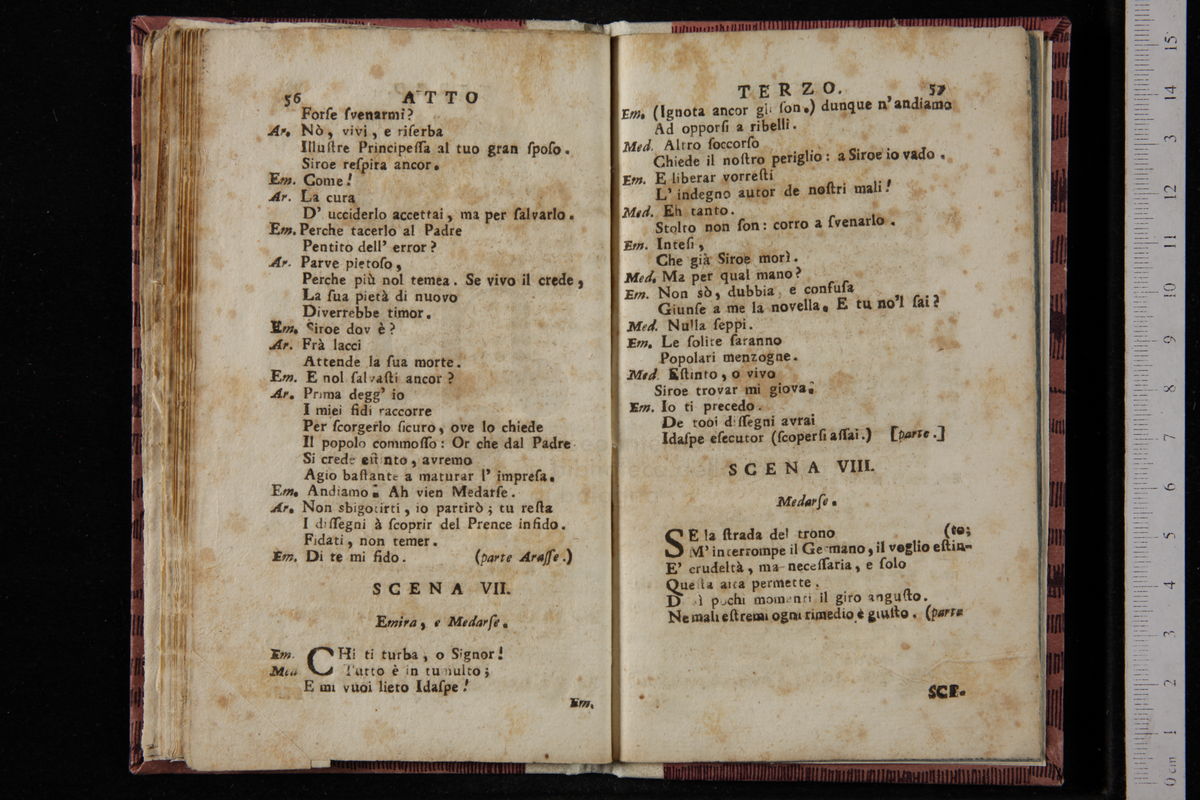 56 ATTO
Forſe ſvenarmi?
Ar. Nò, vivi, e riſerba
Illuſtre Principeſſa al tuo gran ſpoſo.
Siroe reſpira ancor.
Em. Come!
Ar. La cura
D' ucciderlo accettai, ma per ſalvarlo.
Em. Perche tacerlo al Padre
Pentito dell' error?
Ar. Parve pietoſo,
Perche più nol temea. Se vivo il crede,
La ſua pietà di nuovo
Diverrebbe timor.
Em. Siroe dov è?
Ar. Frà lacci
Attende la ſua morte.
Em. E nol ſalvaſti ancor?
Ar. Prima degg' io
I miei fidi raccorre
Per ſcorgerlo ſicuro, ove lo chiede
Il popolo commoſſo: Or che dal Padre
Si crede eſtinto, avremo
Agio baſtante a maturar l' impreſa.
Em. Andiamo. Ah vien Medarſe.
Ar. Non sbigotirti, io partirò; tu reſta
I diſſegni à ſcoprir del Prence infido.
Fidati, non temer.
Em. Di te mi fido. (parte Araſſe.)
SCENA VII.
Emira, e Medarſe.
Em. CHi ti turba, o Signor!
Med Tutto è in tumulto;
E mi vuoi lieto Idaſpe!
Em.
TERZO. 57
Em. (Ignota ancor gli ſon.) dunque n'andiamo
Ad opporſi a ribelli.
Med. Altro ſoccorſo
Chiede il noſtro periglio: a Siroe io vado.
Em. E liberar vorreſti
L' indegno autor de noſtri mali!
Med. Eh tanto.
Stolto non ſon: corro a ſvenarlo.
Em. Inteſi,
Che già Siroe morì.
Med. Ma per qual mano?
Em. Non sò, dubbia, e confuſa
Giunſe a me la novella. E tu no'l ſai?
Med. Nulla ſeppi.
Em. Le ſolite ſaranno
Popolari menzogne.
Med. Eſtinto, o vivo
Siroe trovar mi giova.
Em. Io ti precedo.
De tooi diſſegni avrai
Idaſpe eſecutor (ſcoperſi aſſai.) [parte.]
SCENA VIII.
Medarſe.
SE la ſtrada del trono (to;
M'interrompe il Germano, il voglio eſtin-
E' crudeltà, ma neceſſaria, e ſolo
Queſta aita permette.
Di sì pochi momenti il giro anguſto.
Ne mali eſtremi ogni rimedio è giuſto. (parte
SCE.
0 cm 1 2 3 4 5 6 7 8 9 10 11 12 13 14 15